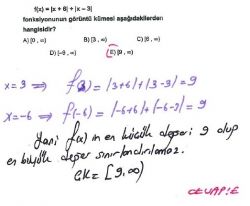 f(x) = |x + 6| + |x – 3|
fonksiyonunun görüntü kümesi aşağıdakilerden
hangisidir?
A) [0 , ∞) B) [3 , ∞) C) [6 , ∞)
D) [–9 , ∞) E) [9 , ∞)
x=3 ⟹ f(3) = |3+6|+|3-3| = 9
x=-6 ⟹ f(-6) = |-6+6|+|-6-3| = 9
Yani f(x) in en küçük değeri 9 olup
en büyük değer sınırlandırılamaz.
GK = [9,∞)
CEVAP:E